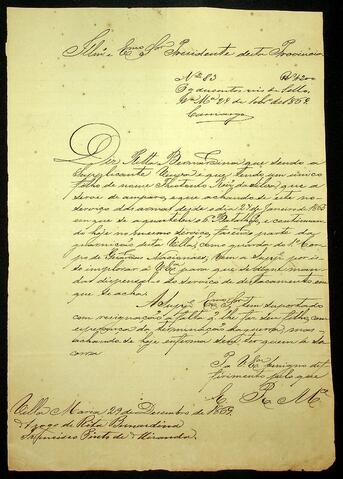 Illmo e Exmo Snr Presidente desta Provincia
No 83 Rs 200
Pg dusentos reis de sello
Diz Ritta Bernardina que sendo a
Supplicante viuva e que tendo um unico
filho de nome
serve de amparo, e que achando-se este no
serviço das armas desde o dia 27 de Janro de 1865
em que se aquartelou o 6o Batalhão, e continuando
do hoje no mesmo serviço, fasendo parte da
guarnição desta Villa, como guarda do 1o Corpo
po de Nacionaes, vem a Suppe por isso
so implorar a V Exa para que se digne mandar
dispensal-o do serviço do destacamento em
que se acha
A Suppe Exmo Snr tem suportado
com resignação a falta q' lhe faz seu filho, com
esperança da terminação da guerra, mas
achando-se hoje enferma sem ter quem a
P. a V. Exa benigno de-
ferimento pelo que
E. R. Mce
Villa Maria 29 de Dezembro de 1869
Arogo de Rita Bernardina
Francisco Pinto de Miranda